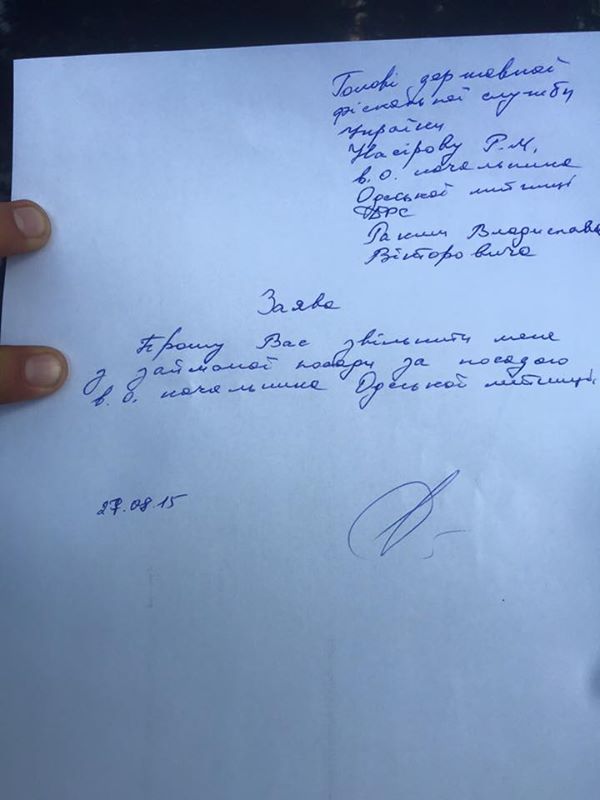 Голові державної
фіскальної служби
України
Насірову Р.М,
в.о. начальника
Одеської митниці
ДФС
Владислава
Вікторовича
Заява
Прошу Вас звільнити мене
з займаної посади за посадою
в.о. начальника Одеської митниці.
27.08.15